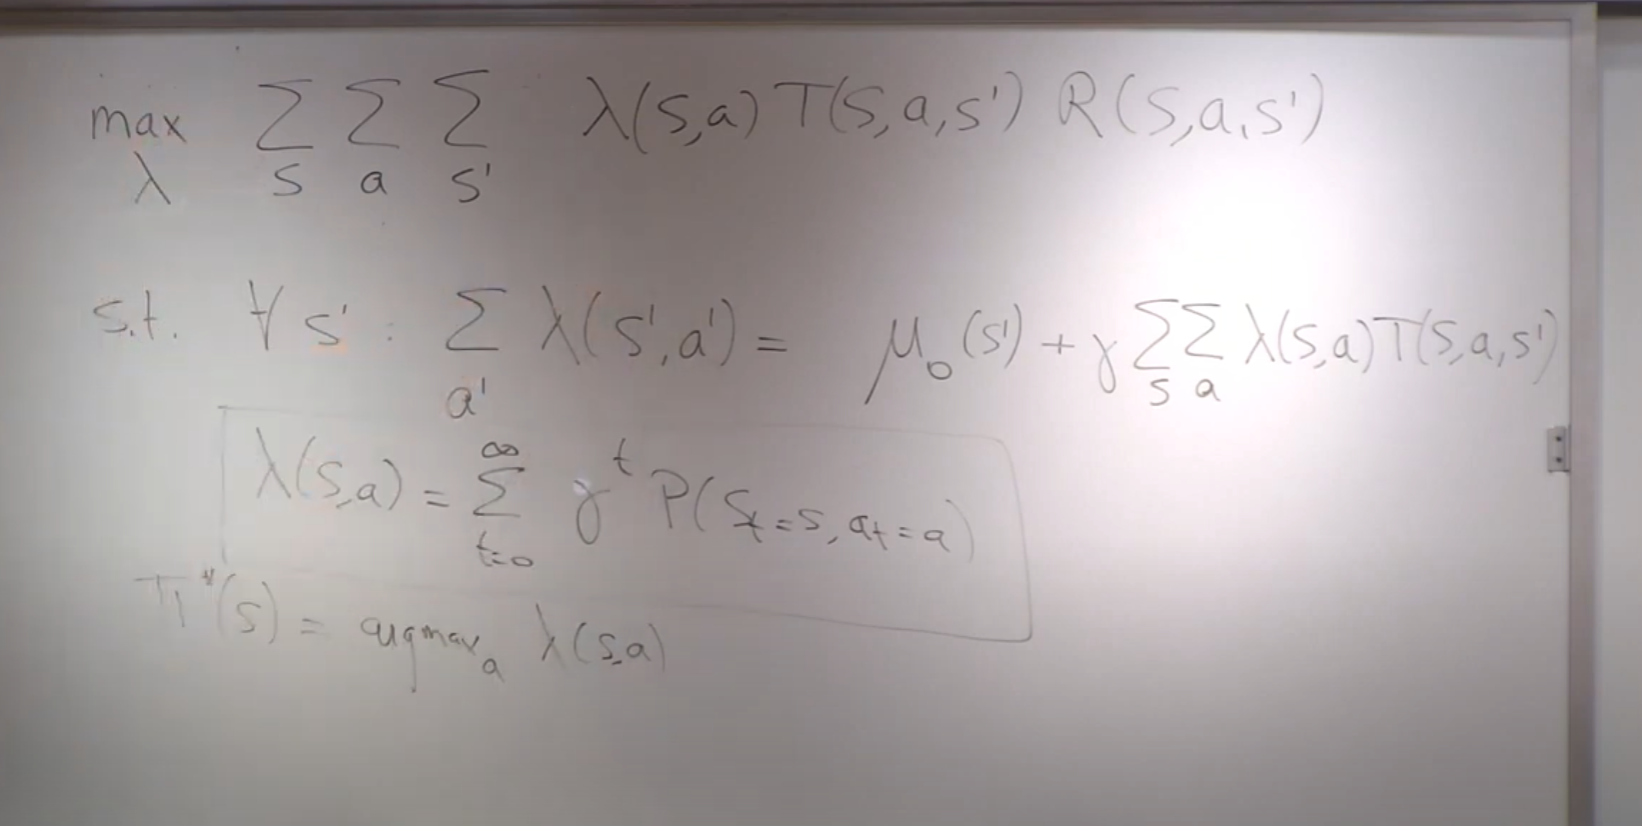 max_λ Σ_s Σ_a Σ_s' λ(s,a) T(s,a,s') R(s,a,s')
s.t. ∀s' : Σ_a' λ(s',a') = μ₀(s') + γ Σ_s Σ_a λ(s,a) T(s,a,s')
λ(s,a) = Σ_{t=0}^{∞} γ^t P(s_t=s, a_t=a)
π*(s) = argmax_a λ(s,a)